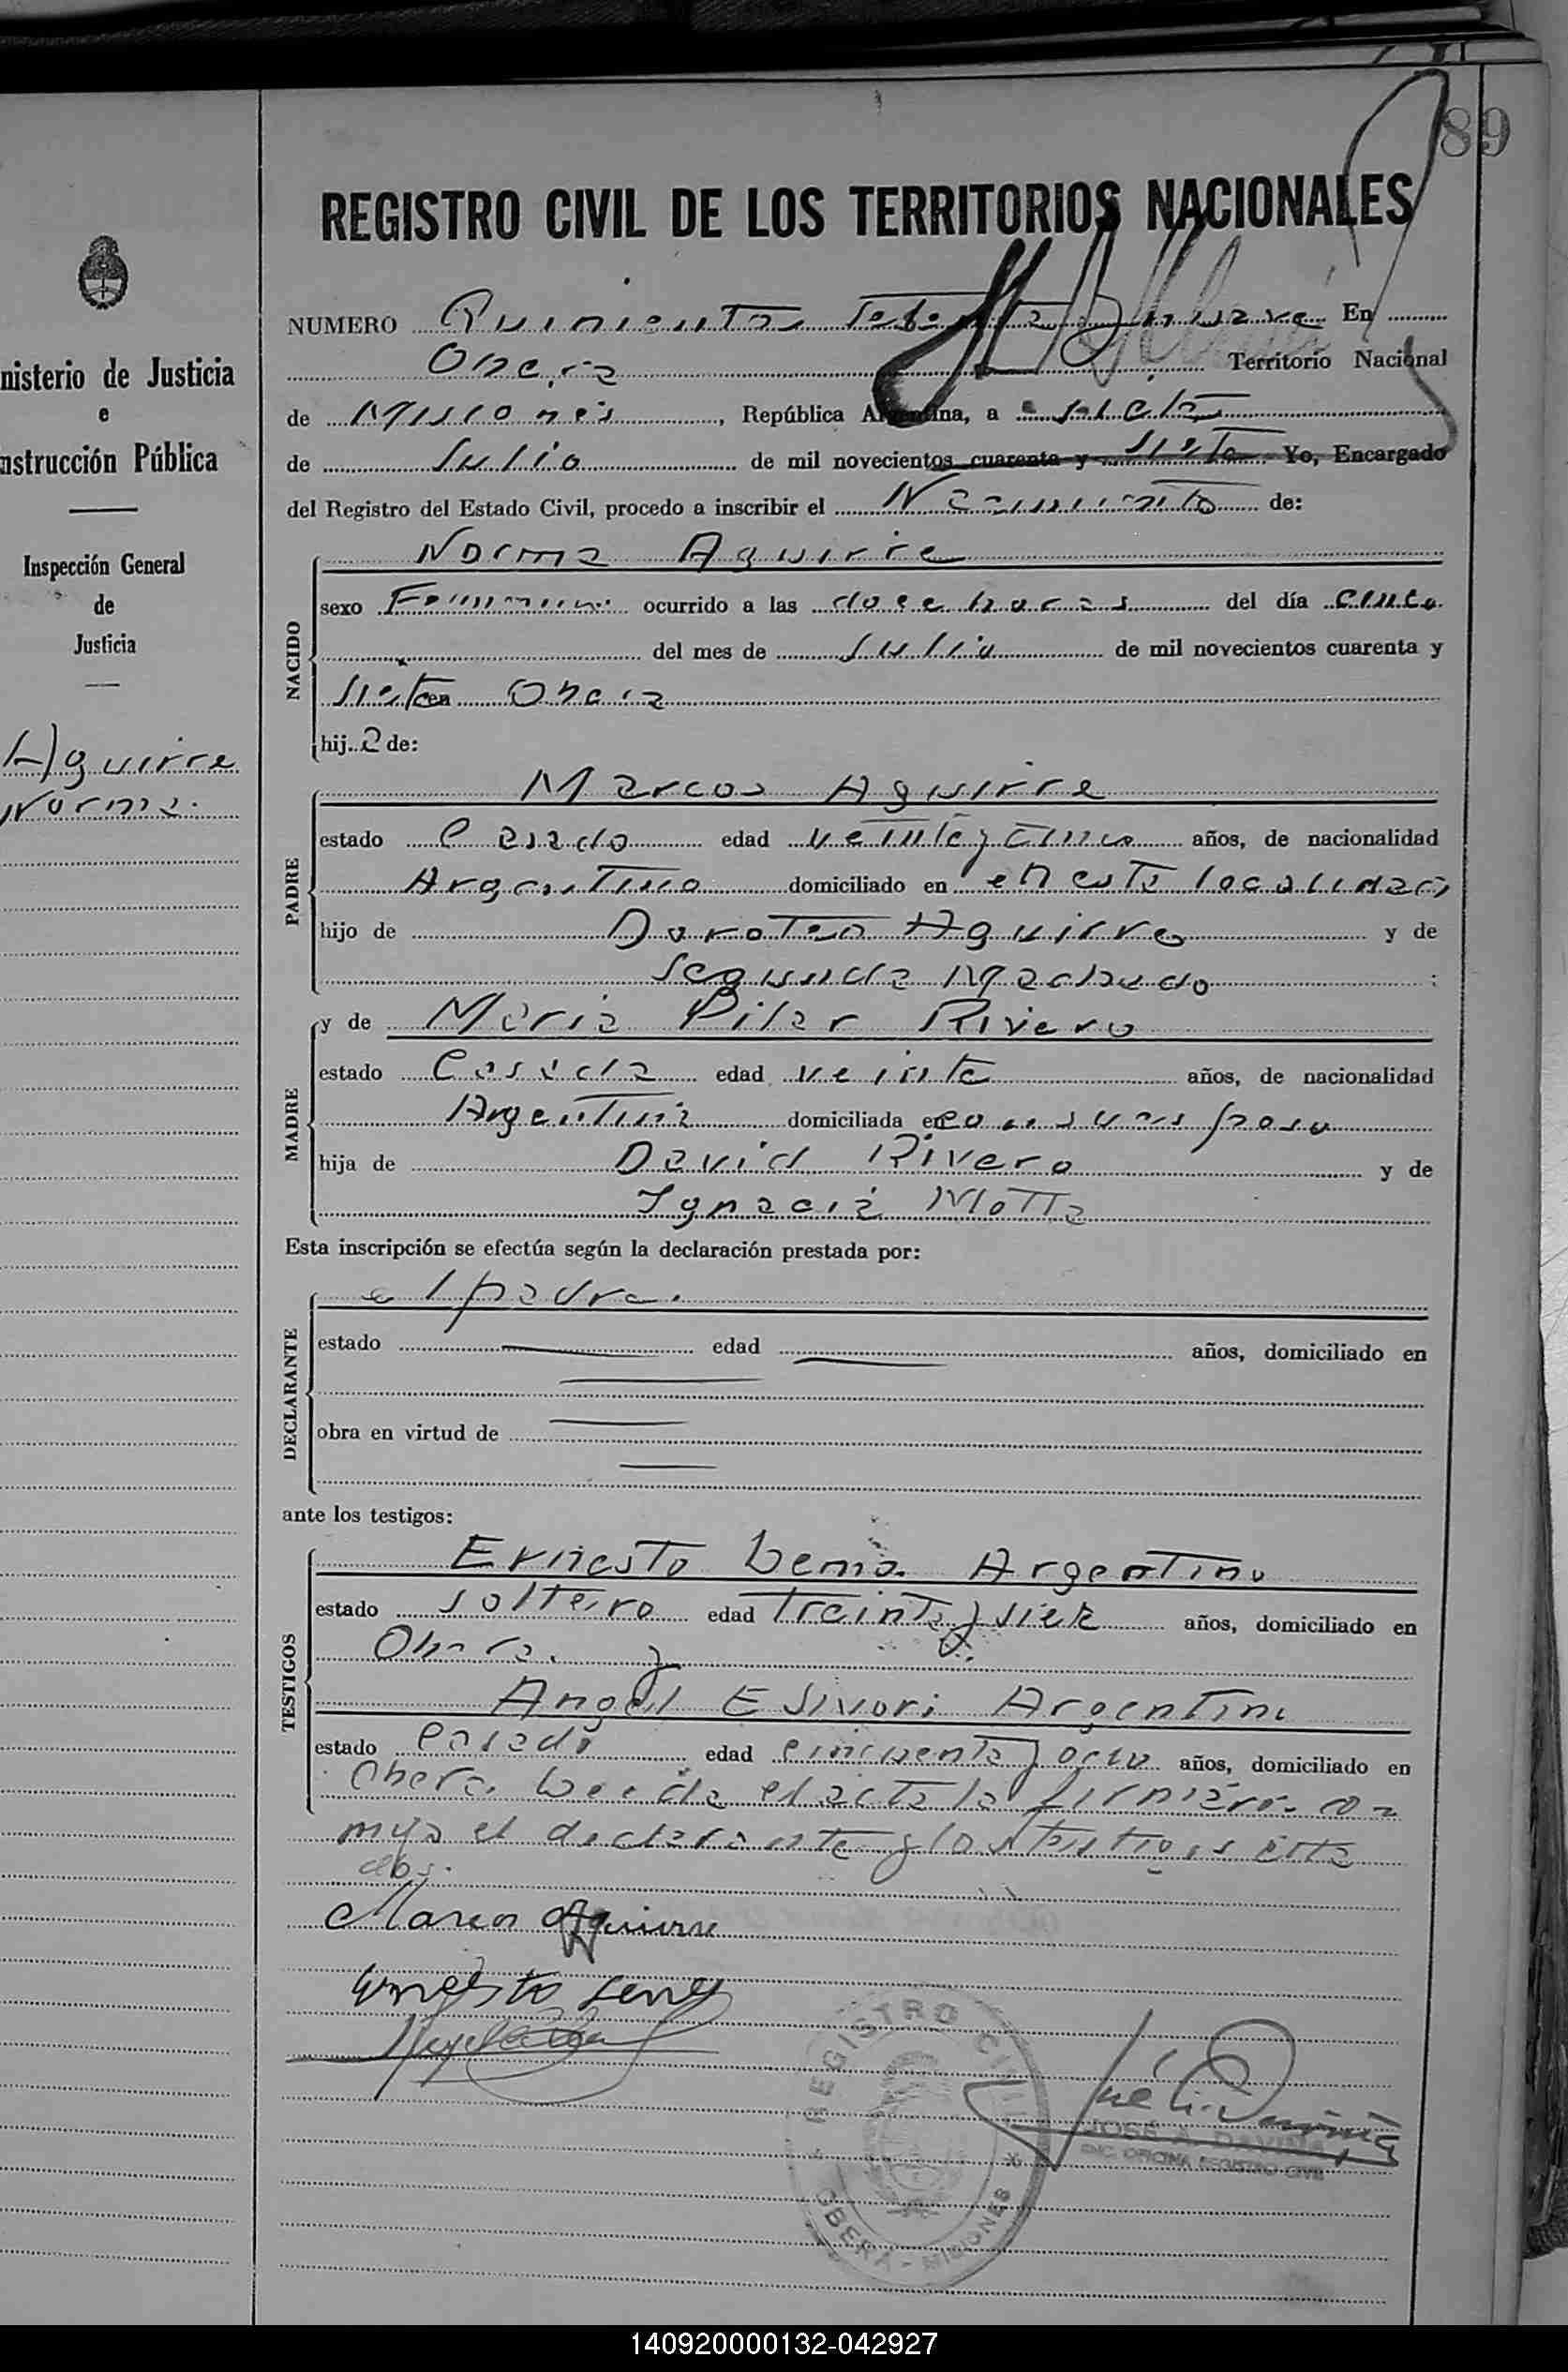 89
REGISTRO CIVIL DE LOS TERRITORIOS NACIONALES
NUMERO Quinientos y nueve En
Obera Territorio Nacional
de Misiones, República Argentina, a siete
de Julio de mil novecientos cuarenta y siete Yo, Encargado
del Registro del Estado Civil, procedo a inscribir el Nacimiento de:
Norma Aguirre
NACIDO
sexo Femenino ocurrido a las doce horas del día cinco
del mes de Julio de mil novecientos cuarenta y
siete en Obera
hija de:
Marcos Aguirre
PADRE
estado Casado edad veinte y cinco años, de nacionalidad
Argentino domiciliado en en esta localidad
hijo de Doroteo Aguirre y de
Segunda Machado ;
MADRE
y de Maria Pilar Rivero
estado Casada edad veinte años, de nacionalidad
Argentina domiciliada en con su esposo
hija de David Rivero y de
Ignacia Motta
Esta inscripción se efectúa según la declaración prestada por:
DECLARANTE
el padre.
estado edad años, domiciliado en
obra en virtud de
ante los testigos:
TESTIGOS
Ernesto Argentino
estado soltero edad treinta y siete años, domiciliado en
Obera. y
Angel E Sivori Argentino
estado casado edad cincuenta y ocho años, domiciliado en
Obera. Leida el acta la firmaron con
migo el declarante y los testigos cita
dos.
Marcos Aguirre
Ernesto
REGISTRO CIVIL
OBERA - MISIONES
JOSÉ A. DAVIÑA
ENC. OFICINA REGISTRO CIVIL
nisterio de Justicia
e
nstrucción Pública
Inspección General
de
Justicia
Aguirre
Norma.
140920000132-042927